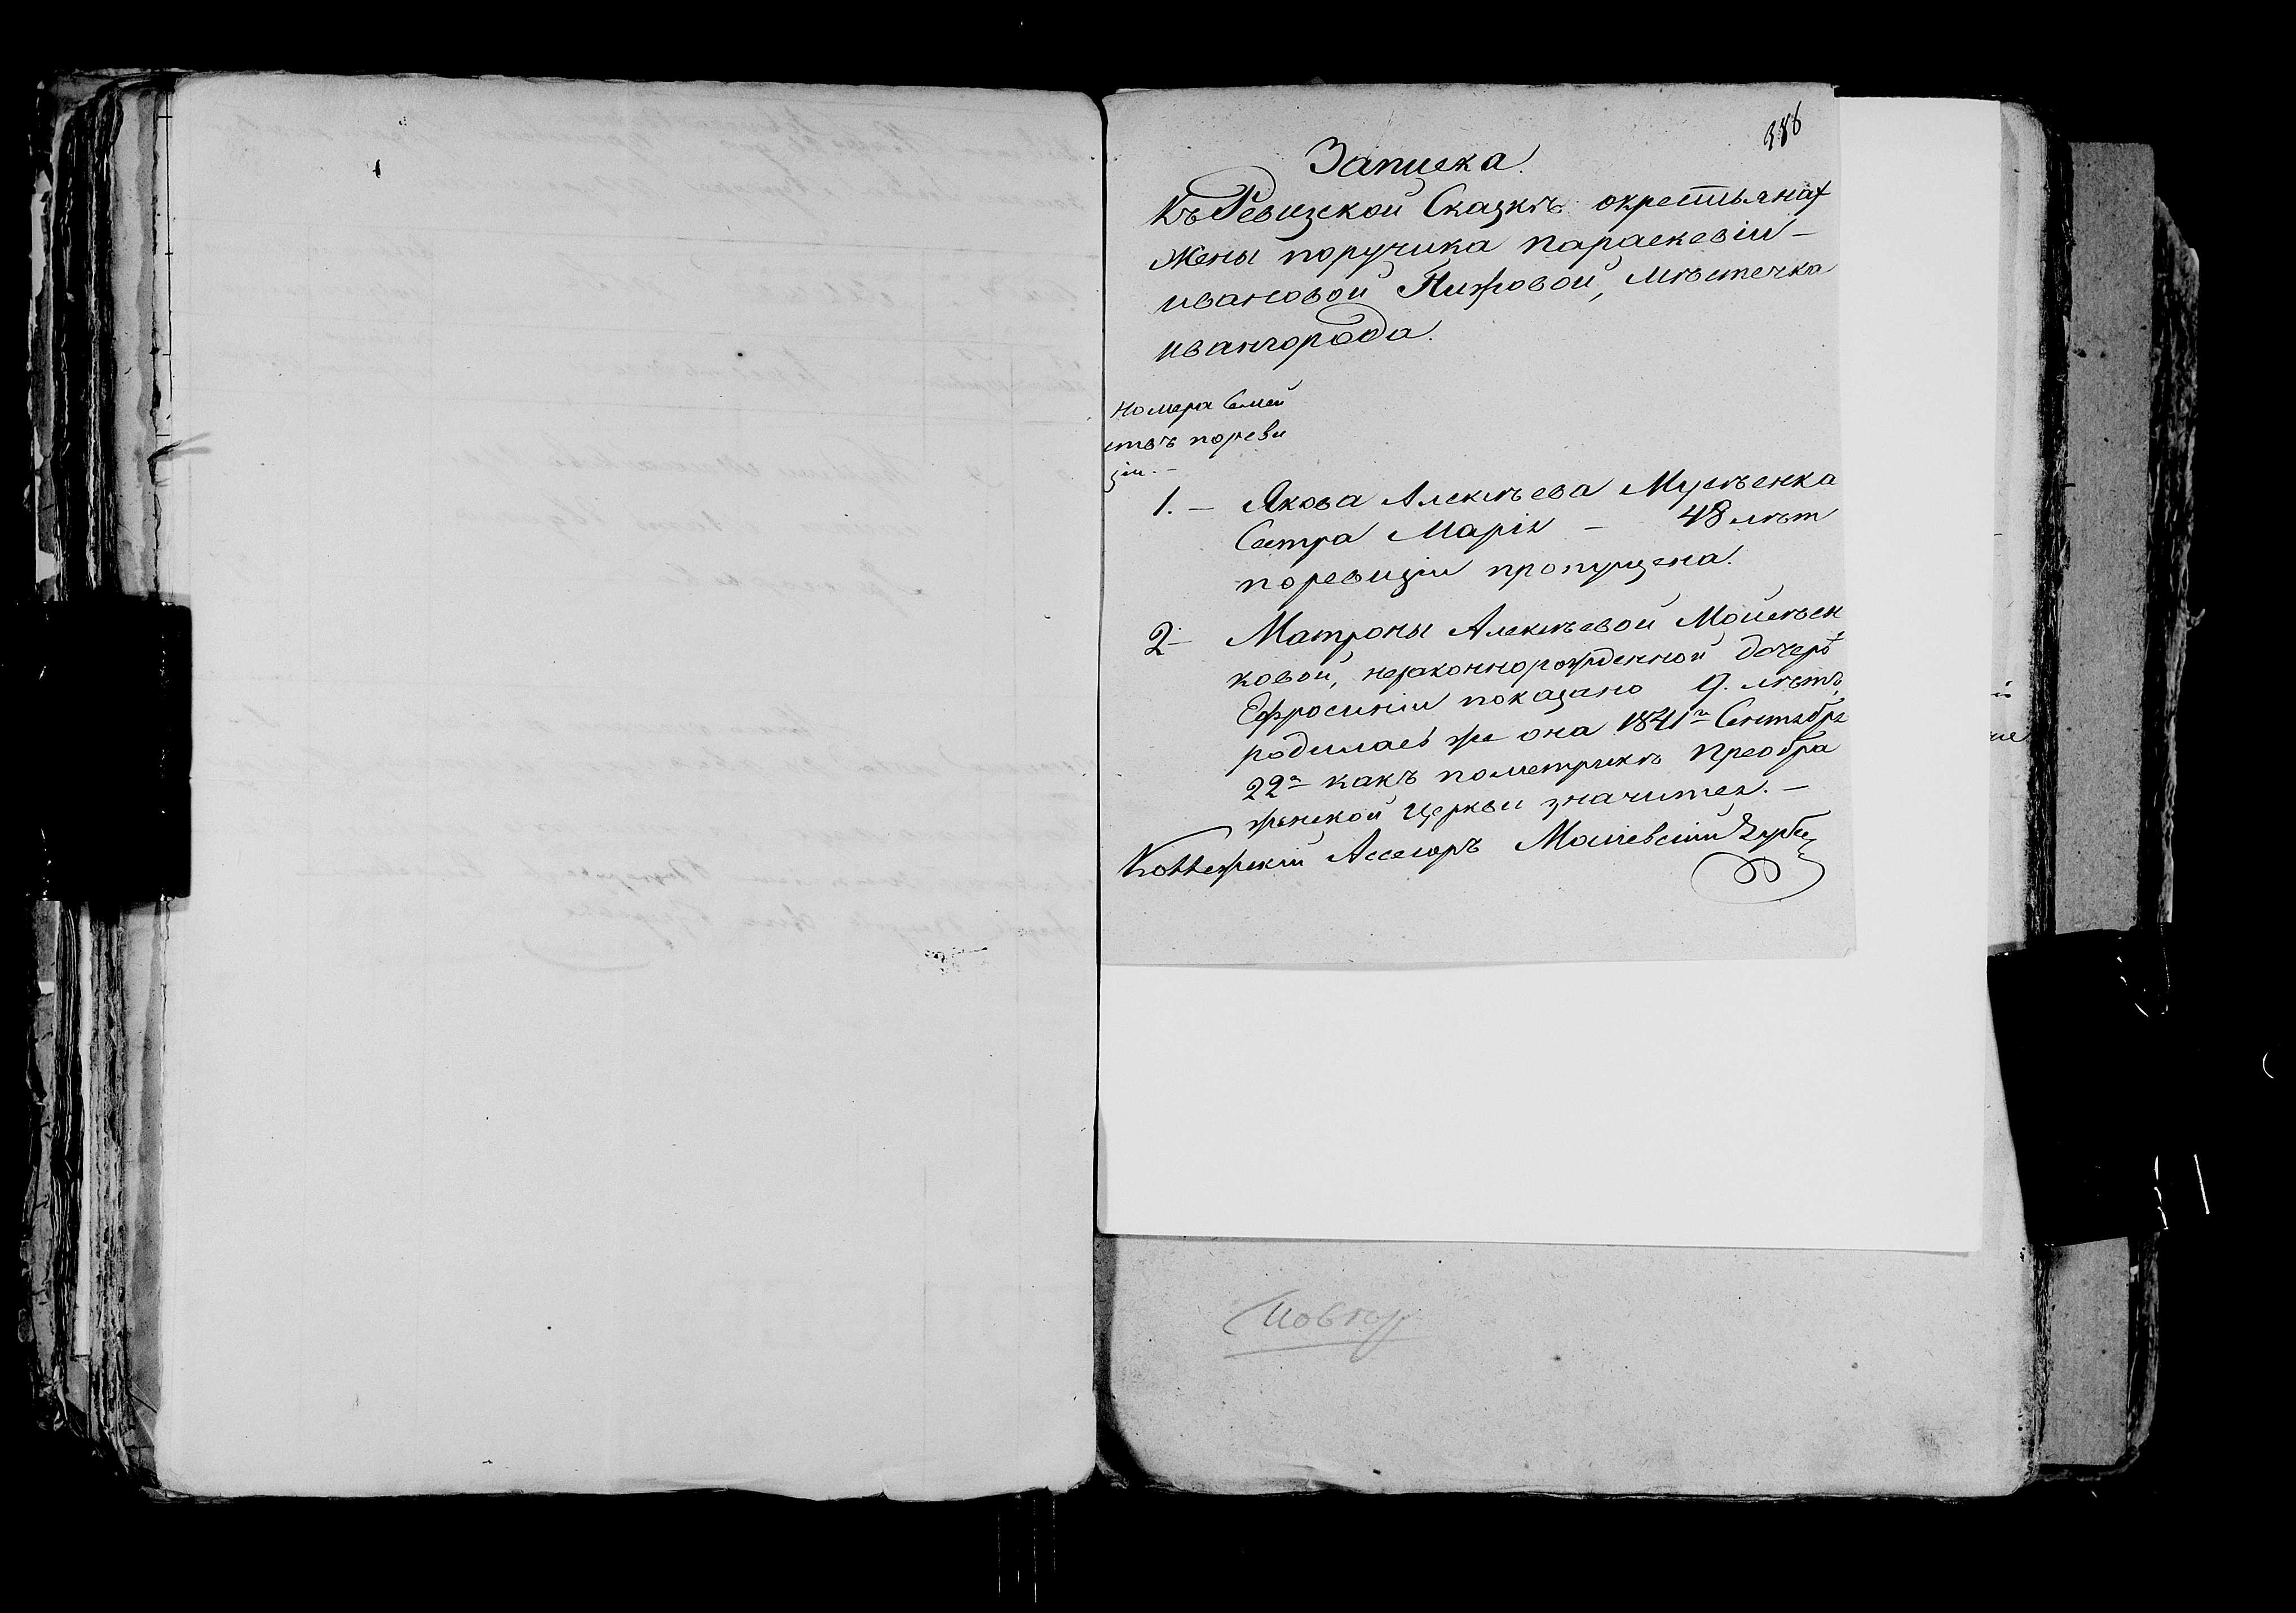 386
Записка.
Къ Ревизской Сказкѣ окрестьянах
жены поручика параскевіи —
ивановой Пижовой, мѣстечка
ивангорода.
Номера Семей
ствъ пореви
зіи. —
1. — Якова Алексѣева Мусѣенка
Сестра Марія — 48 лѣт
поревизіи пропущена.
2 — Матроны Алексѣевой Мойсѣен
ковой, незаконнорожденной дочерѣ
Ефросиніи показано 9. лѣтъ,
родилась же она 1841го Сентября
22го какъ пометрикѣ Преобра
женской Церкви значится. —
Коллежскій Ассесоръ
Повтор